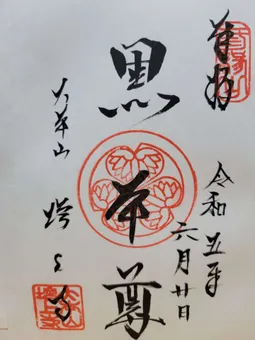 奉拝
令和五年
六月廿日
黒本尊
大本山
増上寺